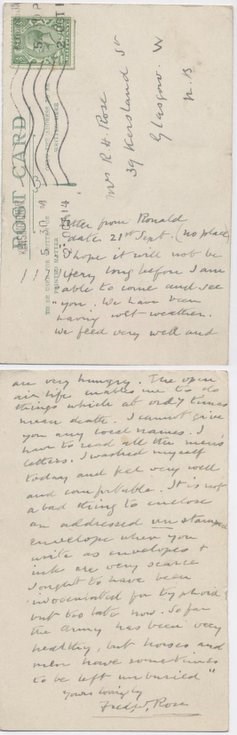 POST CARD
Mrs R. H. Rose
39 Kersland St
Glasgow. W
N.B
Letter from Ronald
Date 21st Sept. (no place)
"I hope it will not be
very long before I am
able to come and see
you. We have been
having wet weather.
We feed very well and
are very hungry. The open
air life enables me to do
things which at ordy times
mean death. I cannot give
you any local names. I
have to read all the men's
letters. I washed myself
today and feel very well
and comfortable. It is not
a bad thing to enclose
an addressed unstamped
envelope when you
write as envelopes &
ink are very scarce
I ought to have been
innoculated for typhoid
but too late now. So far
the Army has been very
healthy, but horses and
men have sometimes
to be left unburied"
Yours
Rose